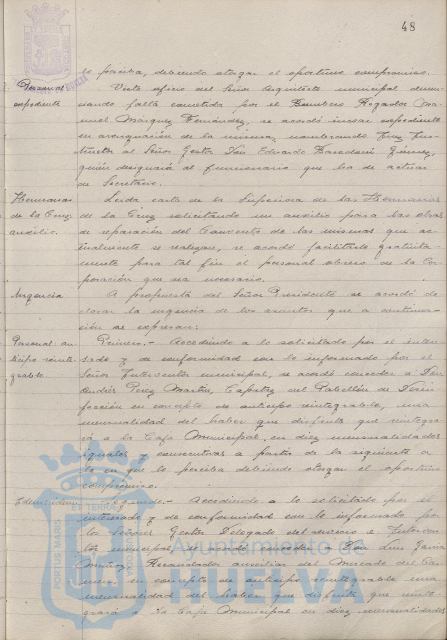 48
lo perciba, debiendo otorgar el oportuno compromiso.
Personal expediente
Visto oficio del Señor Arquitecto municipal denun-
ciando falta cometida por el Bombero Regador Ma-
nuel Márquez Fernández, se acordó incoar expediente
en averiguación de la misma, nombrando Juez Ins-
tructor al Señor Gestor Don Eduardo
quien designará al funcionario que ha de actuar
de Secretario.
Hermanas de la Cruz auxilio.
Leida carta de la Superiora de las Hermanas
de la Cruz solicitando un auxilio para las obras
de reparación del Convento de las mismas que ac-
tualmente se realizan, se acordó facilitarle gratuita-
mente para tal fin el personal obrero de la Cor-
poración que sea necesario.
Urgencia
A propuesta del Señor Presidente se acordó de-
clarar la urgencia de los asuntos que a continua-
ción se expresan:
Personal an-
ticipo reinte-
grable
Primero.- Accediendo a lo solicitado por el intere-
sado y de conformidad con lo informado por el
Señor Interventor municipal, se acordó conceder a Don
Andrés Perez Martín, Capataz del Pabellón de Desin-
fección en concepto de anticipo reintegrable, una
mensualidad del haber que disfruta que reintegra-
rá a la Caja Municipal en diez mensualidades
iguales y consecutivas a partir de la siguiente a
la en que lo perciba debiendo otorgar el oportuno
compromiso.
Idem idem
Segundo.- Accediendo a lo solicitado por el
interesado y de conformidad con lo informado por
los Señores Gestor Delegado del servicio e Interven-
tor municipal, se acordó conceder a Don Luis
Muñoz, Recaudador auxiliar del Mercado del Car-
men en concepto de anticipo reintegrable una
mensualidad del haber que disfruta que reinte-
grará a la Caja Municipal en diez mensualidades
PORTUS MARIS ET TERRAE
Ayuntamiento de
HUELVA